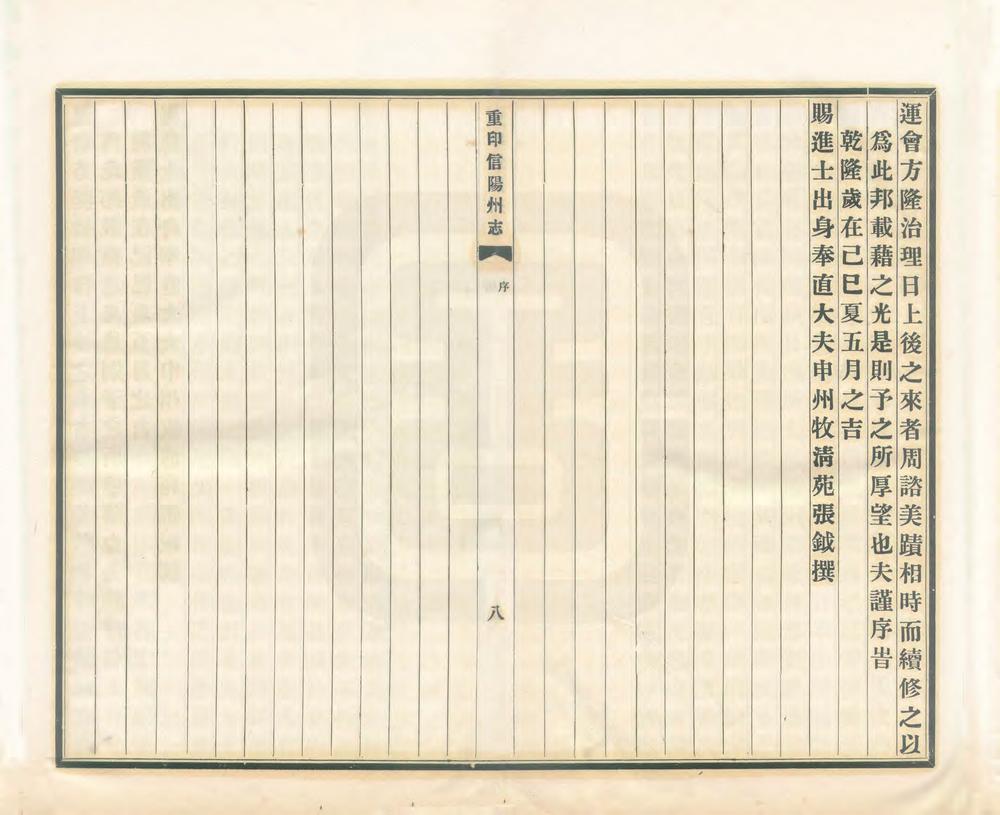 運會方隆治理日上後之來者周諮美蹟相時而續修之以
爲此邦載藉之光是則予之所厚望也夫謹序旹
乾隆歲在己巳夏五月之吉
賜進士出身奉直大夫申州牧清苑張鉞撰
重印信陽州志
序
八